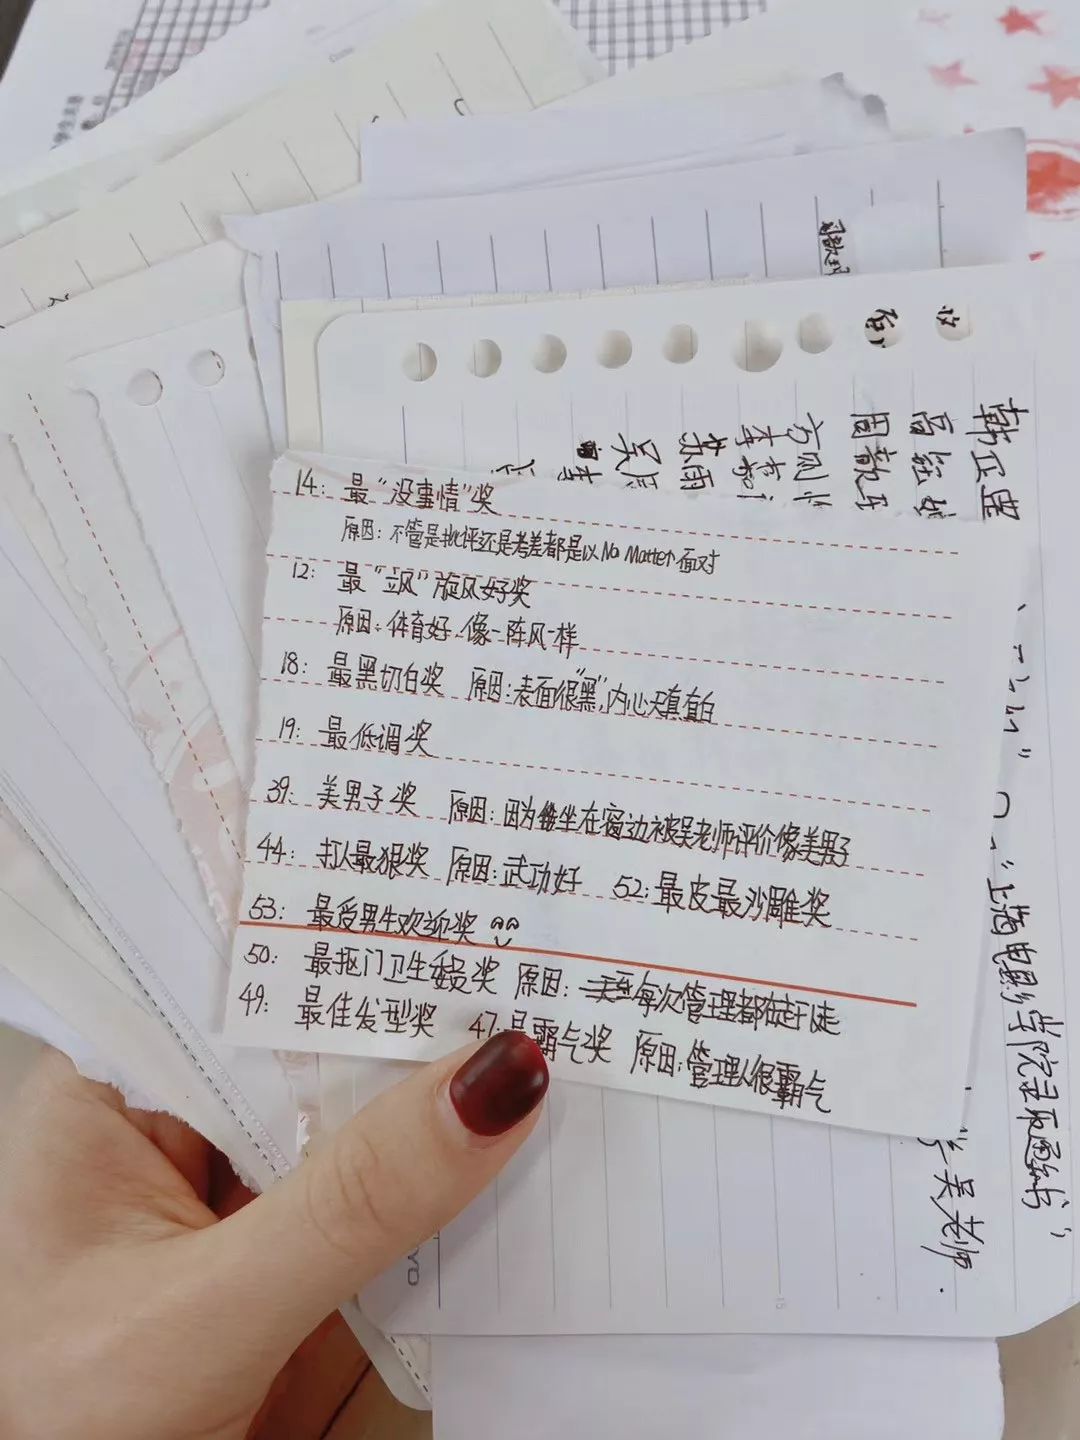 14: 最"没事情"奖
原因: 不管是批评还是考差都是以No Matter面对
12: 最"立风"旋风好奖
原因: 体育好 像一阵风一样
18: 最黑切白奖 原因: 表面很"黑", 内心天真直白
19: 最低调奖
39: 美男子奖 原因: 因为坐在窗边被吴老师评价像美男子
44: 打人最狠奖 原因: 武功好 52: 最皮最沙雕奖
53: 最受男生欢迎奖
50: 最抠门卫生委员奖 原因: 每次管理都赶走
49: 最佳发型奖 47: 最霸气奖 原因: 管理人很霸气
"上海电影学院录取通知书"
吴老师.